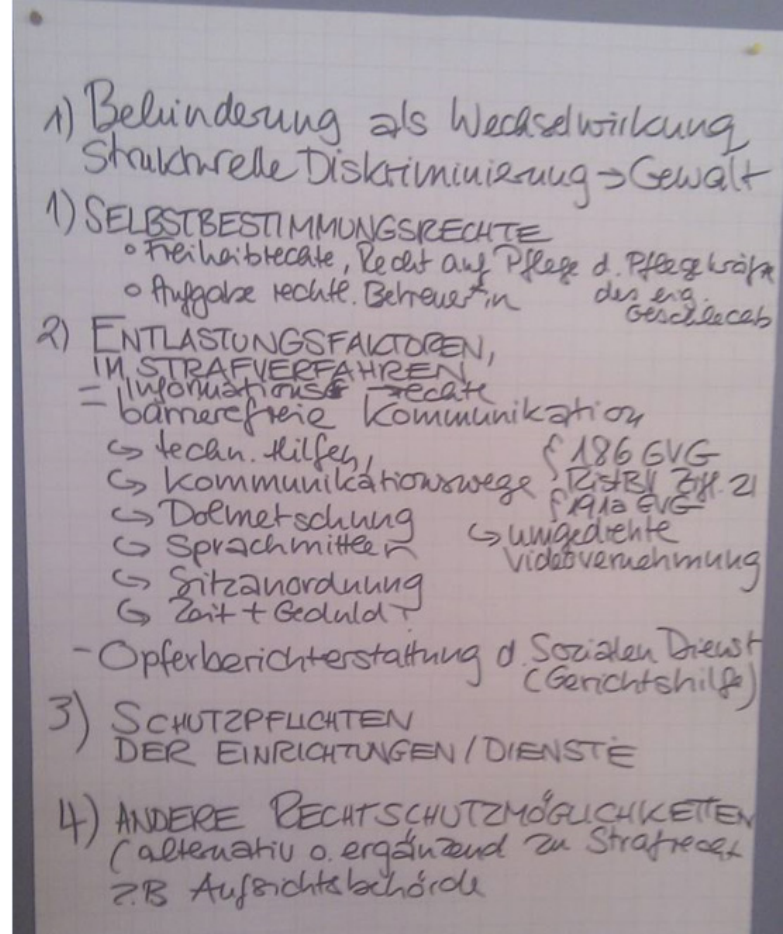 1) Behinderung als Wechselwirkung
Strukturelle Diskriminierung → Gewalt
1) SELBSTBESTIMMUNGSRECHTE
° Freiheitsrechte, Recht auf Pflege d. Pflegekräfte
des eig.
Geschlecht
° Aufgabe rechtl. Betreuer*in
2) ENTLASTUNGSFAKTOREN,
IM STRAFVERFAHREN
= Informationsrechte
- barrierefreie Kommunikation
↪ techn. Hilfen, § 186 GVG
↪ Kommunikationswege, RiStBV Ziff. 21
§ 191a GVG
↪ Dolmetschung
↪ Sprachmittler
↪ umgedrehte
Videovernehmung
↪ Sitzanordnung
↪ Zeit + Geduld
- Opferberichterstattung d. Sozialen Dienst
(Gerichtshilfe)
3) SCHUTZPFLICHTEN
DER EINRICHTUNGEN / DIENSTE
4) ANDERE RECHTSCHUTZMÖGLICHKEITEN
(alternativ o. ergänzend zu Strafrecht
z.B Aufsichtsbehörde